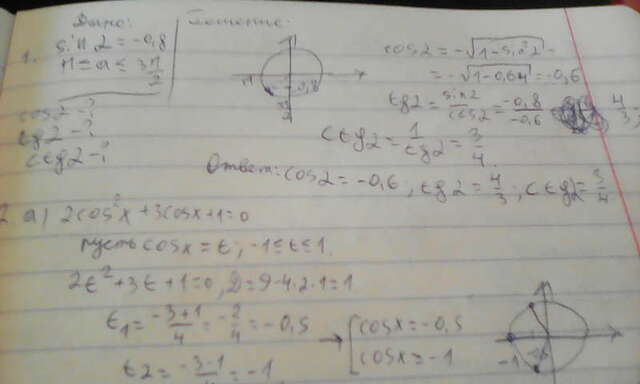 Дано:
1. sin α = -0,8
π ≤ α ≤ 3π/2
cos α - ?
tg α - ?
ctg α - ?
Решение:
π
-0,8
3π/2
cos α = -√(1-sin²α) =
= -√(1-0,64) = -0,6
tg α = sin α/cos α = -0,8/-0,6 4/3;
ctg α = 1/tg α = 3/4.
Ответ: cos α = -0,6, tg α = 4/3; ctg α = 3/4
2. а) 2cos²x + 3cosx + 1 = 0
пусть cosx = t; -1 ≤ t ≤ 1.
2t² + 3t + 1 = 0, D = 9-4·2·1 = 1
t₁ = -3+1/4 = -2/4 = -0,5
t2 = -3-1/4 = -1
→ [ cosx = -0,5
cosx = -1
-1